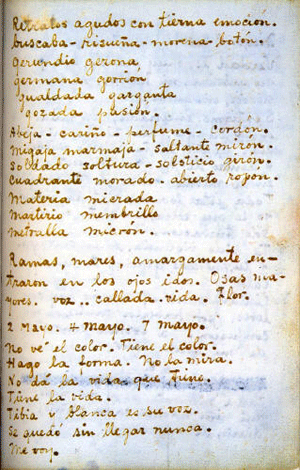 Retratos agudos con tierna emoción.
buscaba - risueña - morena - botón.
Gerundio gerona
germana gorrión
gualdada garganta
gozada pasión.
Abeja - cariño - perfume - cordón.
migaja marmaja - saltante mirón.
Soldado soltura - solsticio girón.
cuadrante morado. abierto ropón.
Materia micrada
Martirio membrillo
metralla micrón.
Ramas, mares, amargamente en-
traron en los ojos idos. Osas ma-
yores. voz.. callada. vida. Flor.
2 Mayo. 4 mayo. 7 mayo.
No vé el color. Tiene el color.
Hago la forma. No la mira.
No da la vida que tiene.
Tiene la vida.
Tibia y blanca es su voz.
Se quedó sin llegar nunca.
Me voy.